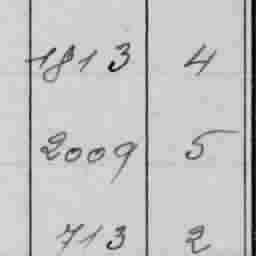 1813 4
2009 5
713 2